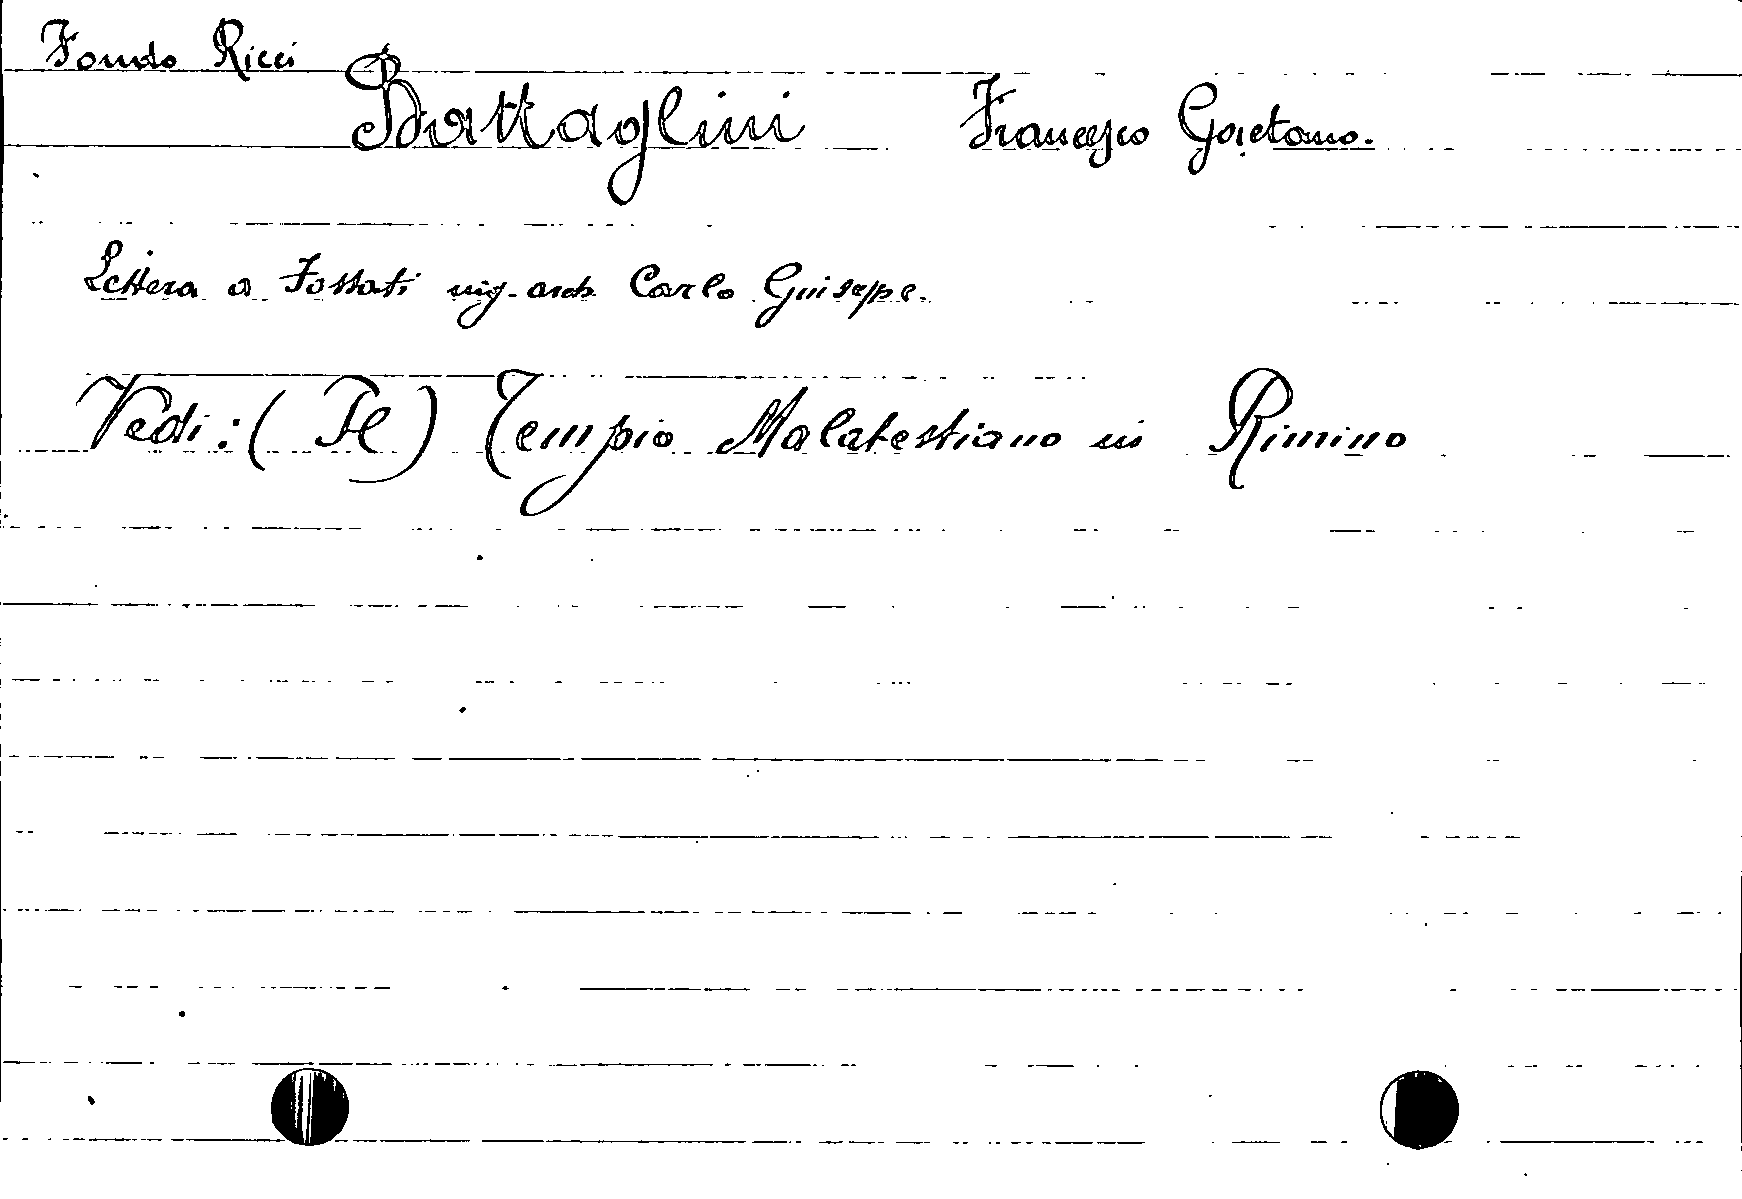 Fondo Ricci
Battaglini Francesco Gaetano.
Lettera a Fossati ing. arch. Carlo Giuseppe.
Vedi: (Il) Tempio Malatestiano in Rimino